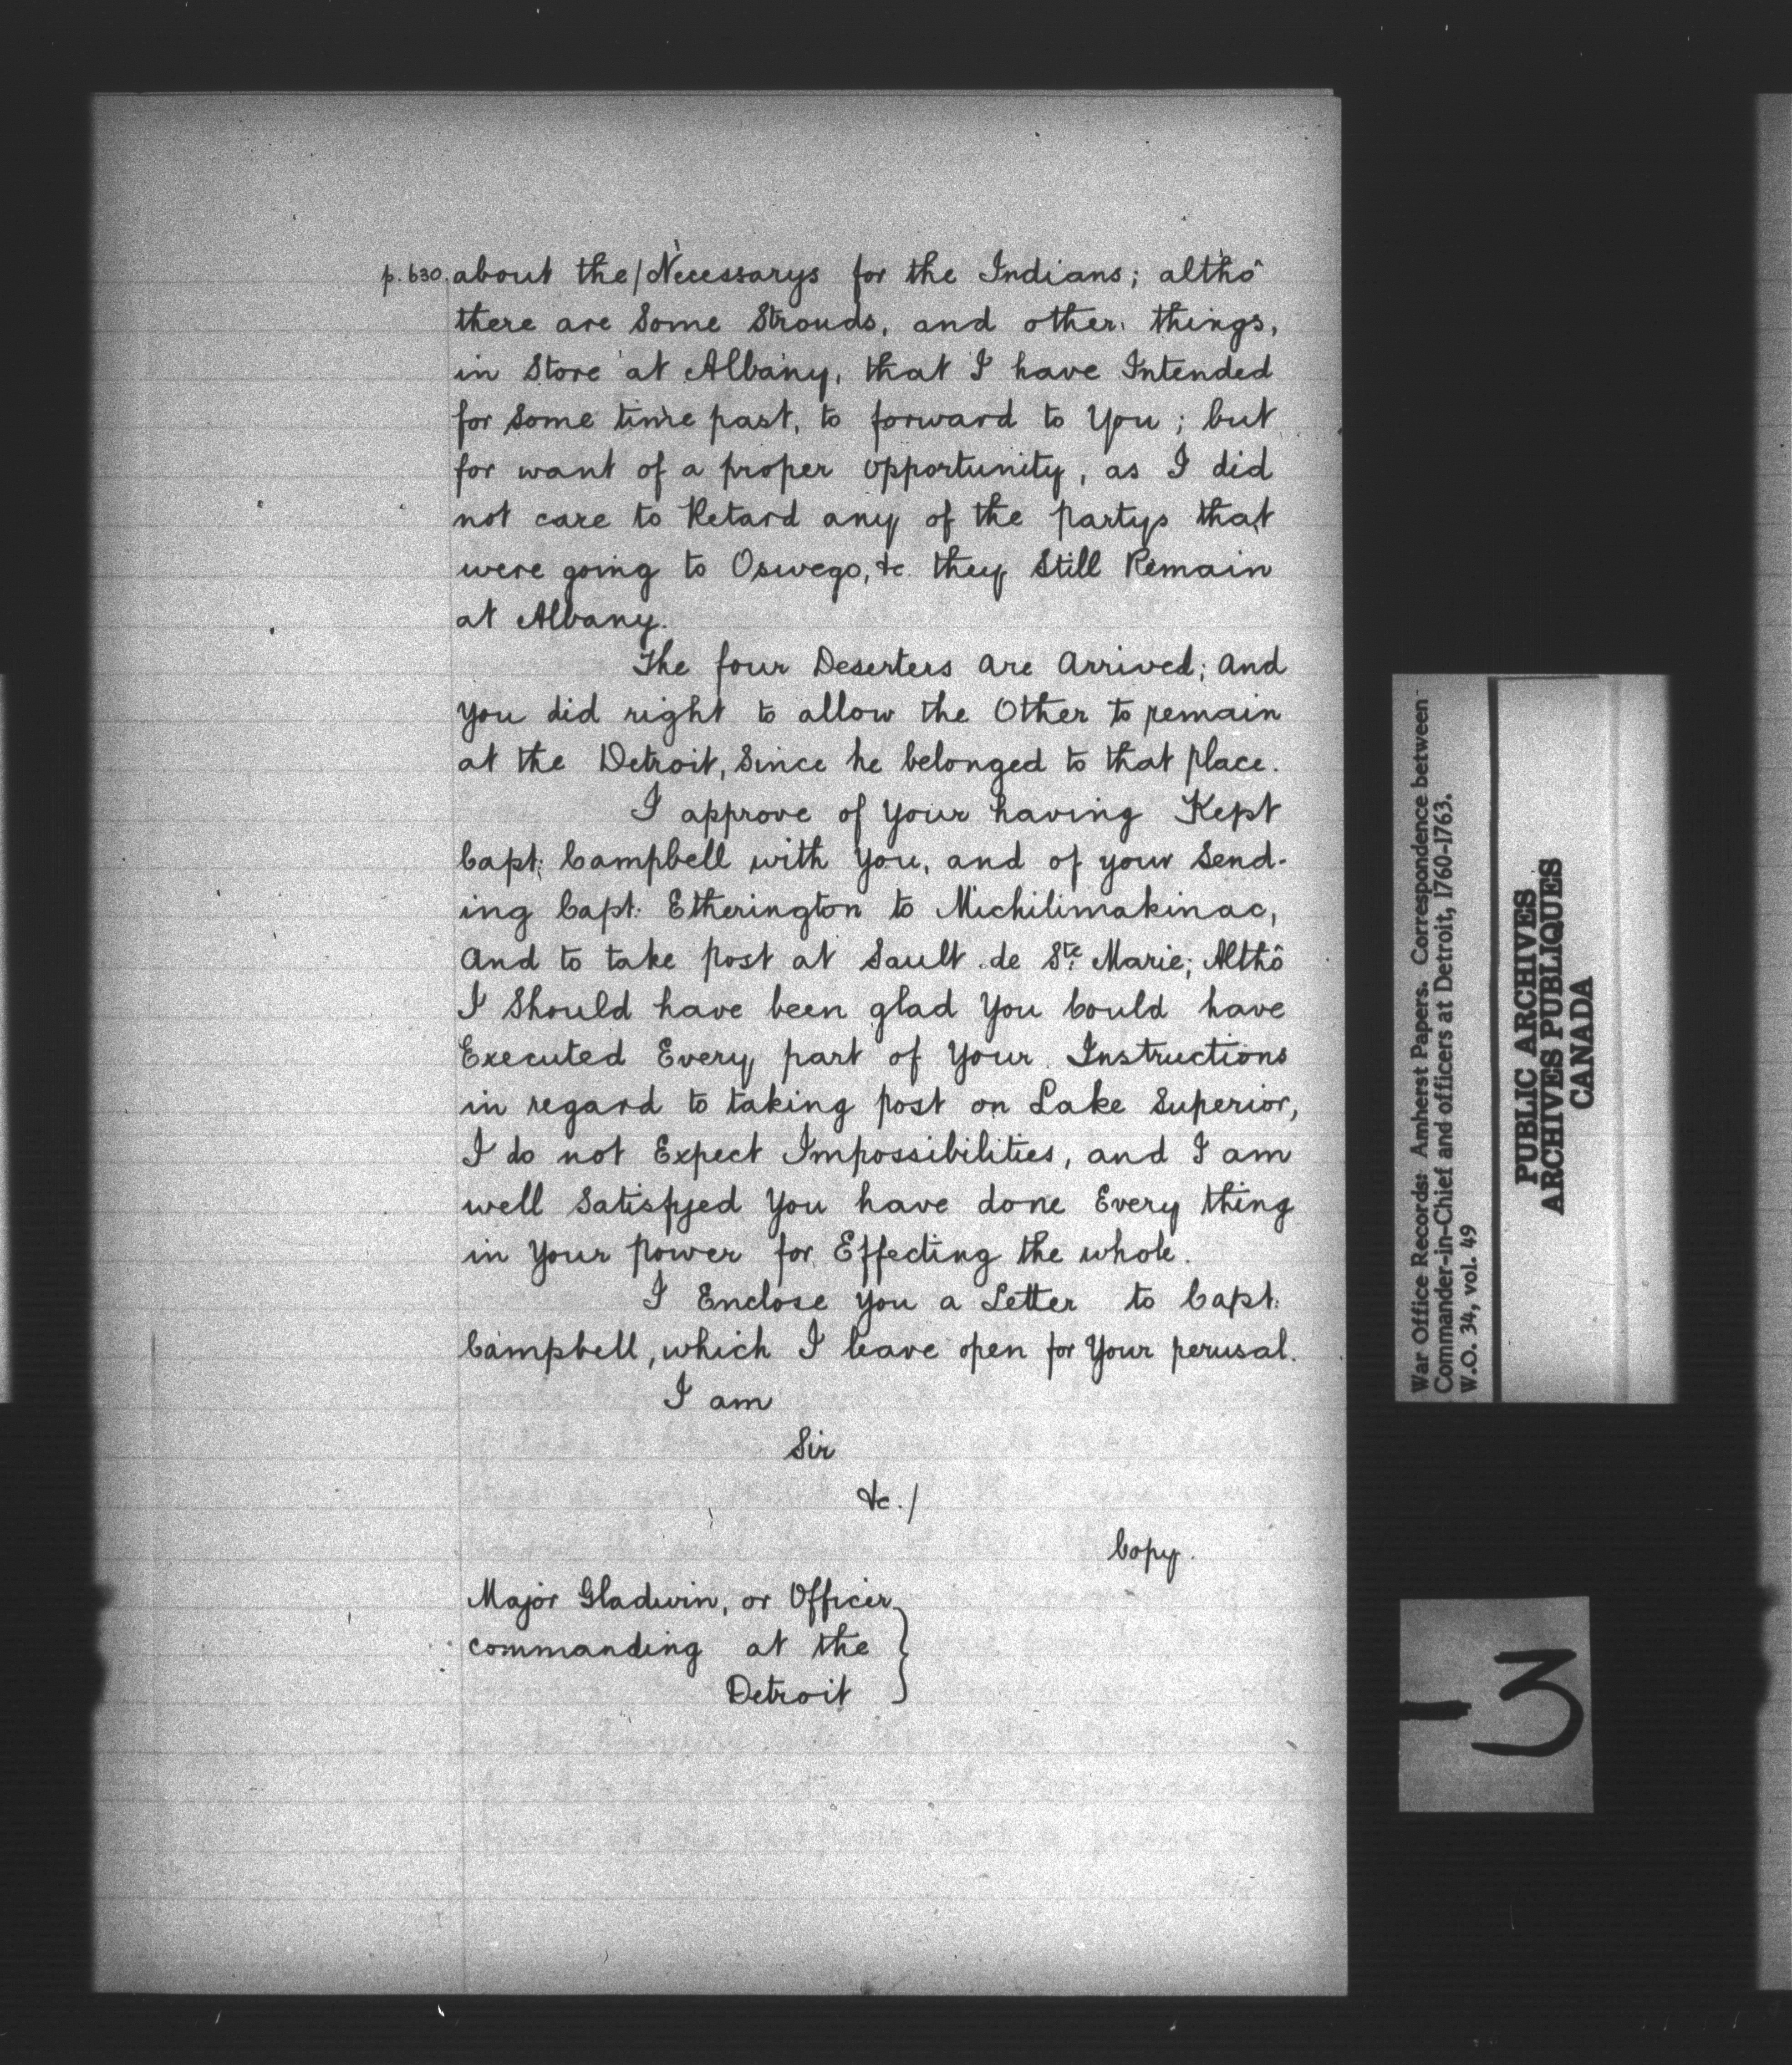 p. 630. about the/Necessarys for the Indians; althô
there are Some Strouds, and other things,
in Store at Albany, that I have Intended
for Some time past, to forward to You; but
for want of a proper Opportunity, as I did
not care to Retard any of the partys that
were going to Oswego, &c. they Still Remain
at Albany.
The four Deserters are Arrived; And
You did right to allow the Other to remain
at the Detroit, Since he belonged to that place.
I approve of Your having Kept
Capt: Campbell with You, and of your Send-
ing Capt: Etherington to Michilimakinac,
And to take Post at Sault de Ste. Marie; Althô
I Should have been glad You Could have
Executed Every part of Your Instructions
in regard to taking post on Lake Superior,
I do not Expect Impossibilities, and I am
well Satisfyed You have done Every thing
in Your Power for Effecting the whole.
I Enclose You a Letter to Capt:
Campbell, which I leave open for Your perusal.
I am
Sir
&c./
Copy.
Major Gladwin, or Officer
commanding at the
Detroit
War Office Records: Amherst Papers. Correspondence between
Commander-in-Chief and officers at Detroit, 1760-1763.
W.O. 34, vol. 49
PUBLIC ARCHIVES
ARCHIVES PUBLIQUES
CANADA
-3